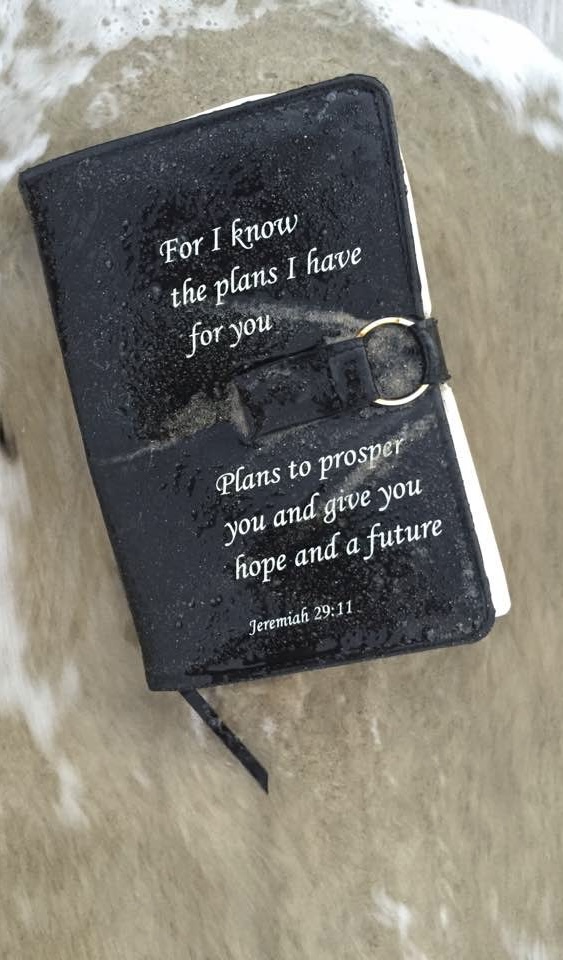 For I know
the plans I have
for you
Plans to prosper
you and give you
hope and a future
Jeremiah 29:11